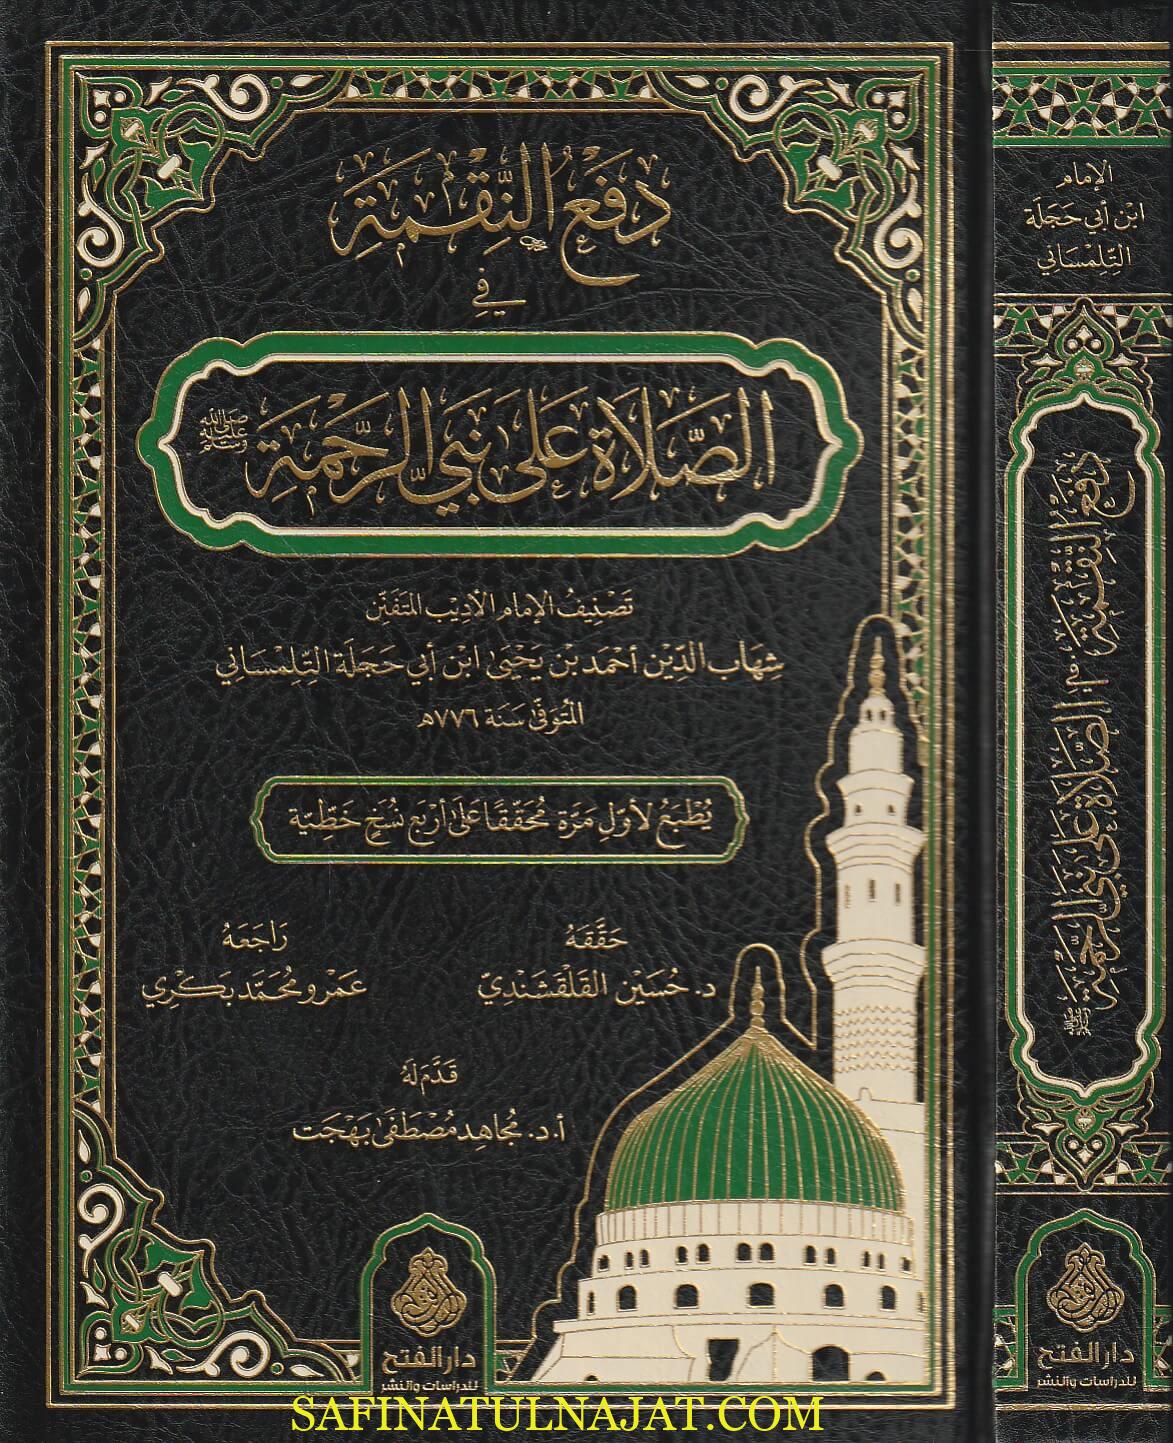 دَفْعُ النِّقْمَةِ
فِي
الصَّلَاةِ عَلَى نَبِيِّ الرَّحْمَةِ ﷺ
تَصْنِيفُ الإمَامِ الأدِيْبِ المتَفَنِّن
شِهَاب الدِّيْن أحْمَد بْن يَحْيَىٰ ابْن أبي حَجَلَة التِّلِمْسَاني
المُتَوَفَّىٰ سَنَة ٧٧٦هـ
يُطْبَعُ لأوَّلِ مَرَّة مُحَقَّقًا عَلَى أرْبَع نُسَخٍ خَطِّيَّة
حَقَّقَهُ
د. حُسَيْن القَلْقَشَنْدِيّ
رَاجَعَهُ
عَمْرو مُحَمَّد بَكْرِي
قَدَّمَ لَهُ
أ. د. مُجَاهِد مُصْطَفَىٰ بَهْجَت
دار الفتح
للدراسات والنشر
SAFINATULNAJAT.COM
الإمَام
ابْن أبي حَجَلَة
التِّلِمْسَاني
دَفْعُ النِّقْمَةِ فِي الصَّلَاةِ عَلَى نَبِيِّ الرَّحْمَةِ ﷺ
دار الفتح
للدراسات والنشر